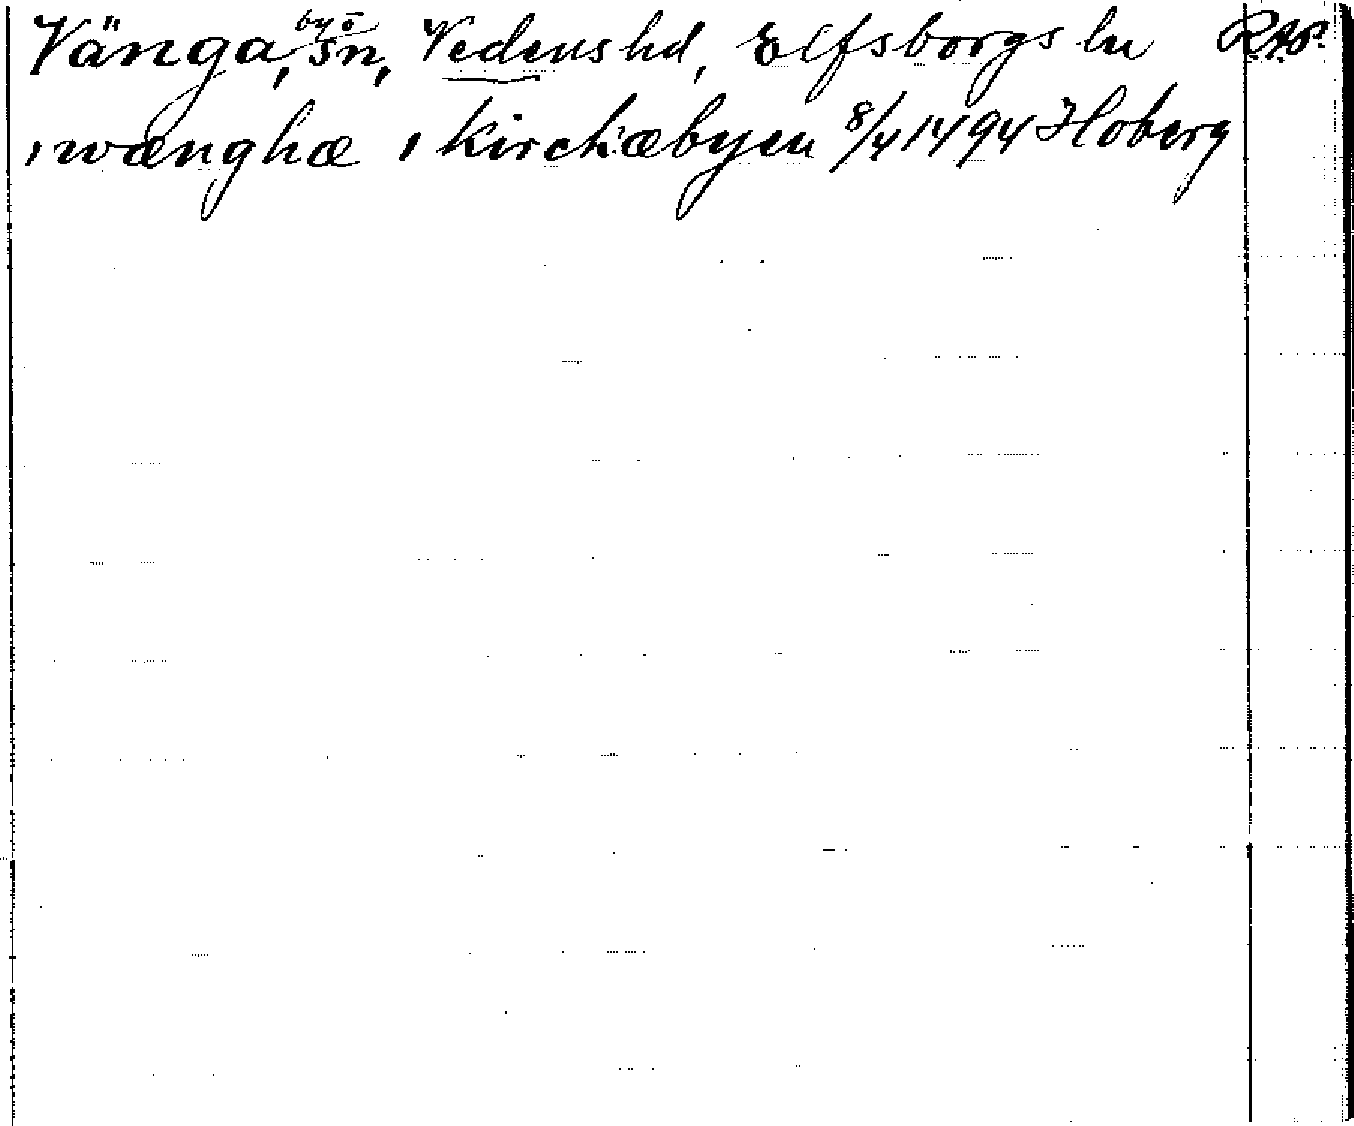 Vänga, by o sn, Vedens hd, Elfsborgs ln RAP.
i wænghæ i kirchæbyen 8/4 1494 Hoberg